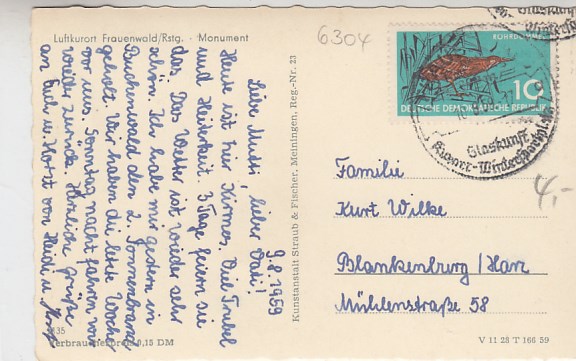 Luftkurort Frauenwald/Rstg. - Monument
9.8.1959
Liebe Mutti, lieber Vati!
Heute ist hier Kirmes. Viel Trubel
und Heiterkeit. 3 Tage feiern sie
das. Das Wetter ist wieder sehr
schön. Ich habe mir gestern in
Buchenwald den 2. Sonnenbrand
geholt. Wir haben die letzte Woche
vor uns. Sonntag nacht fahren wir
wieder zurück. Herzliche Grüße
an Euch u. Horst von Heidi u.
Verbraucherpreis 0,15 DM
Kunstanstalt Straub & Fischer, Meiningen, Reg.-Nr. 23
6304
ROHRDOMMEL
10
DEUTSCHE DEMOKRATISCHE REPUBLIK
Glaskunst
Wintersportplatz
4,-
Familie
Kurt Wilke
Blankenburg/Harz
Mühlenstraße 58
V 11 28 T 166 59